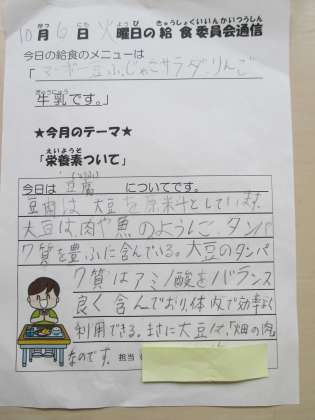 10月6日火曜日の給食委員会通信
今日の給食のメニューは
「マーボー豆ふ、じゃこサラダ、りんご
牛乳です。」
★今月のテーマ★
「栄養素ついて」
今日は 豆腐 についてです。
豆腐は、大豆を原料としています。
大豆は、肉や魚のように、タンパ
ク質を豊ふに含んでいる。大豆のタンパ
ク質はアミノ酸をバランス
良く含んでおり、体内で効率よく
利用できる。まさに大豆は、「畑の肉」
なのです。担当